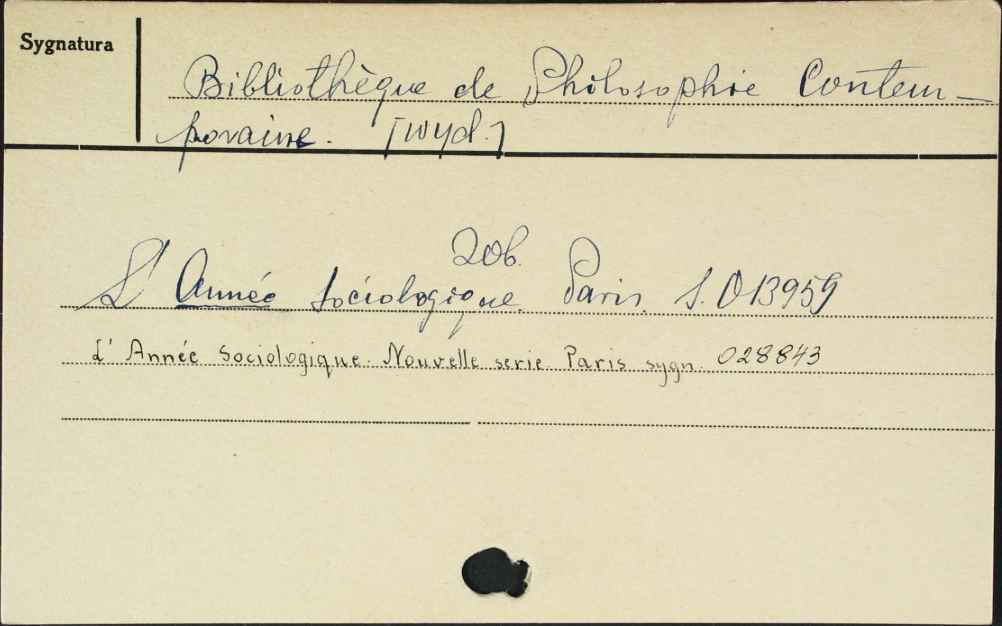 Sygnatura
Bibliothèque de Philosophie Contem-
poraine. [wyd.]
Zob.
L'Année Sociologique. Paris. S. 013959
L'Année Sociologique. Nouvelle serie Paris sygn. 028843